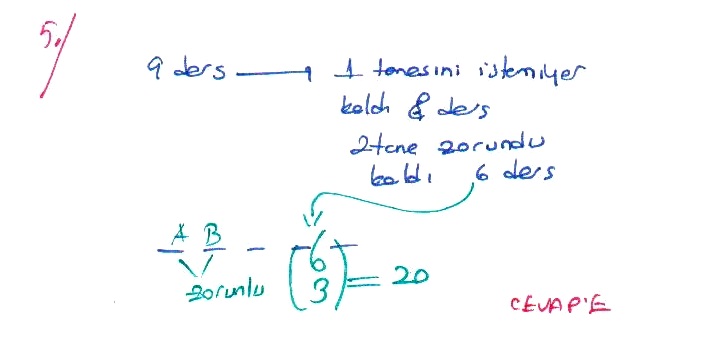 5./
9 ders → 1 tanesini istemiyer
kaldı 8 ders
2 tane zorundu
kaldı 6 ders
A B
zorunlu
(6 3) = 20
CEVAP:E